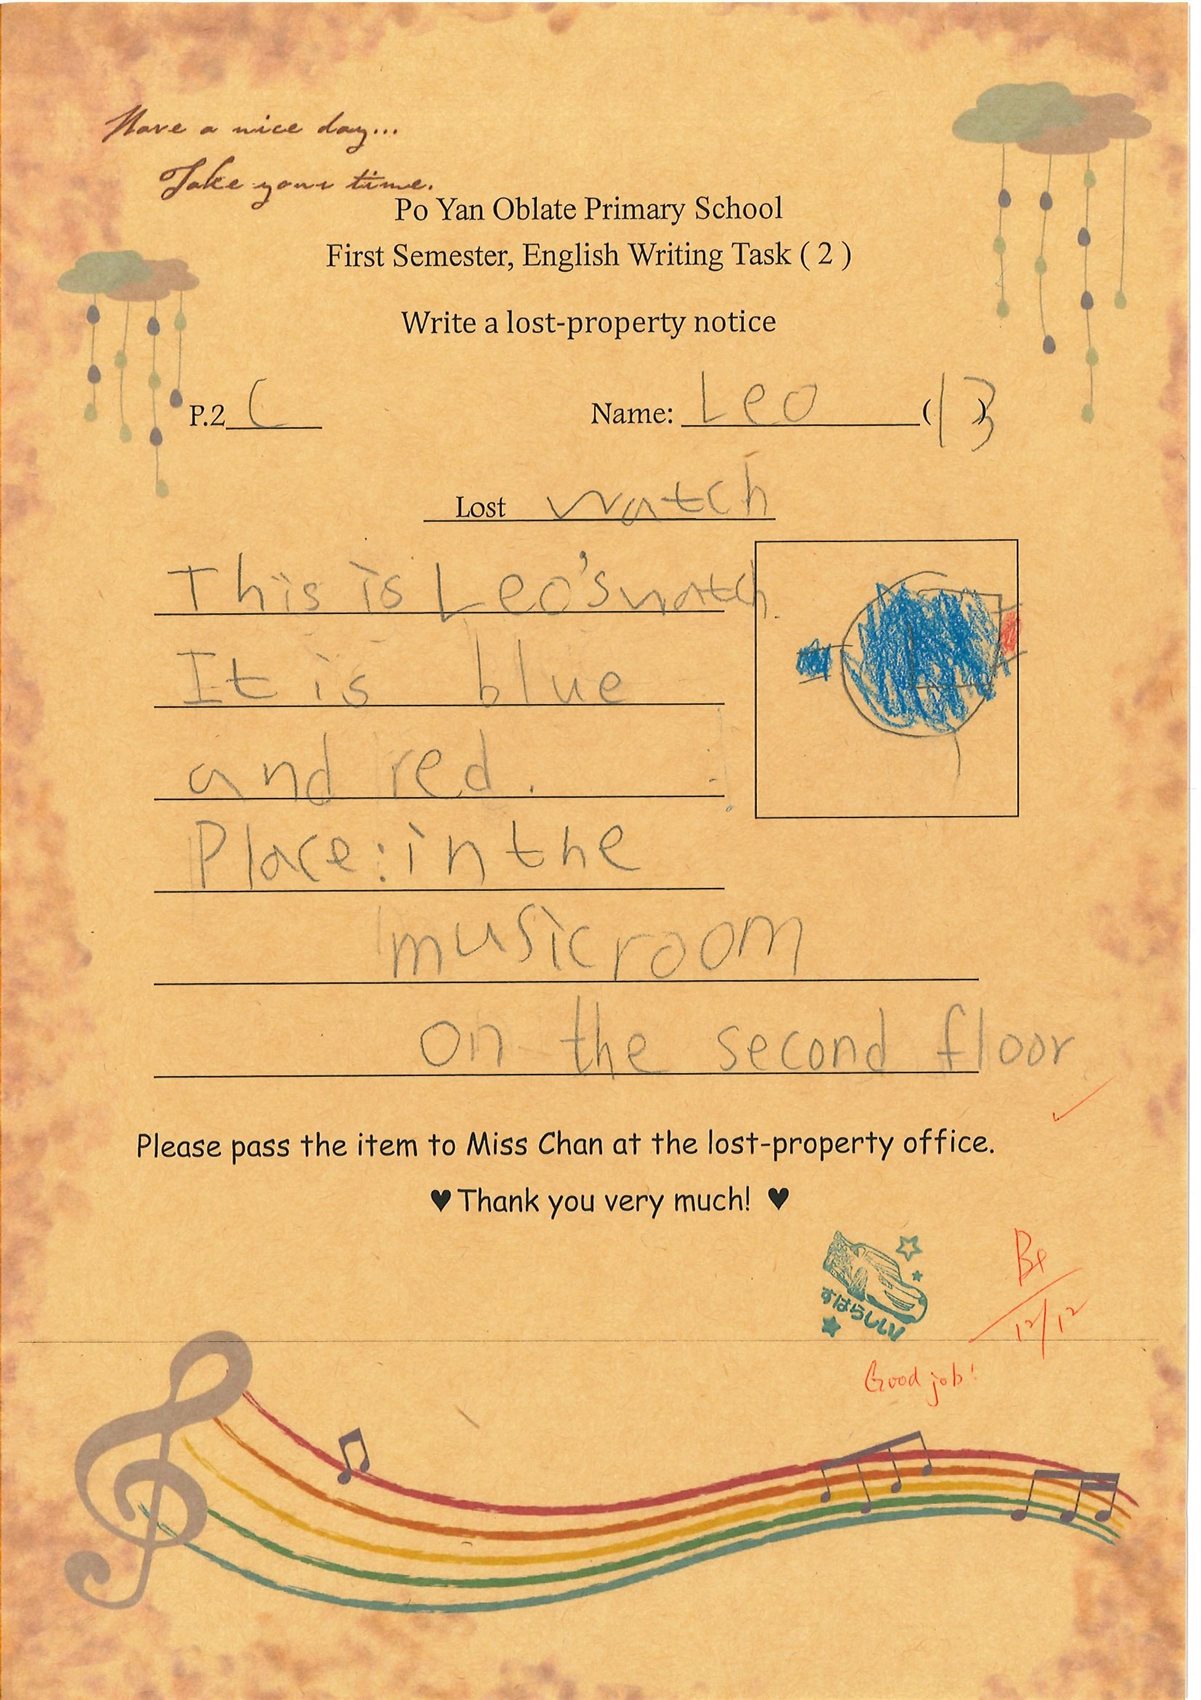 Have a nice day...
Take your time.
Po Yan Oblate Primary School
First Semester, English Writing Task ( 2 )
Write a lost-property notice
P.2 C Name: Leo (13)
Lost watch
This is Leo's watch.
It is blue
and red.
Place: in the
music room
on the second floor
Please pass the item to Miss Chan at the lost-property office.
♥ Thank you very much! ♥
すばらしい
B+
12/12
Good job!